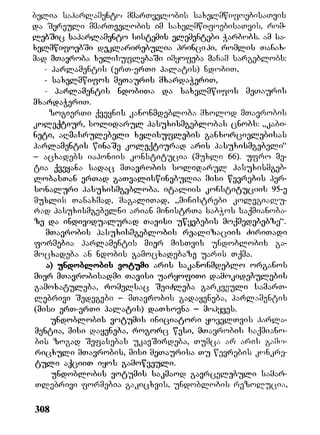 ბელია საპარლამენტო მმართველობის სახელმწიფოებისათვის
და შერეული მმართველობის იმ სახელმწიფოებისათვის, რომ-
ლებშიც საპარლამენტო სისტემის ელემენტები ჭარბობს. ამ სა-
ხელმწიფოებში დეკლარირებულია პრინციპი, რომლის თანახ-
მად მთავრობა ხელისუფლებაში იმყოფება მანამ სარგებლობს:
- პარლამენტის (ერთ-ერთი პალატის) ნდობით,
- სახელმწიფოს მეთაურის მხარდაჭერით,
- პარლამენტის ნდობითა და სახელმწიფოს მეთაურის
მხარდაჭერით.
ზოგიერთ ქვეყნის კანონმდებლობა მხოლოდ მთავრობის
კოლექტიურ, სოლიდარულ პასუხისმგებლობას ცნობს: „კაბი-
ნეტი, აღმასრულებელი ხელისუფლების განხორციელებისას
პარლამენტის წინაშე კოლექტიურად არის პასუხისმგებელი“
– აცხადებს იაპონიის კონსტიტუცია (მუხლი 66). უფრო მე-
ტია ქვეყანა სადაც მთავრობის სოლიდარულ პასუხისმგებ-
ლობასთან ერთად გათვალისწინებულია მისი წევრების პერ-
სონალური პასუხისმგებლობა. იტალიის კონსტიტუციის 95-ე
მუხლის თანახმად, მაგალითად, „მინისტრები კოლეგიალუ-
რად პასუხისმგებელნი არიან მინისტრთა საბჭოს საქმიანობა-
ზე და ინდივიდუალურად თავისი უწყებების მოქმედებებზე“.
მთავრობის პასუხისმგებლობის რეალიზაციის ძირითადი
ფორმებია პარლამენტის მიერ მისთვის უნდობლობის გა-
მოცხადება ან ნდობის გამოცხადებაზე უარის თქმა.
ა) უნდობლობის ვოტუმი არის საკანონმდებლო ორგანოს
მიერ მთავრობისადმი თავისი უარყოფითი დამოკიდებულების
გამოხატულება, რომელსაც შეიძლება გარკვეული სამართ-
ლებრივი შედეგები – მთავრობის გადაყენება, პარლამენტის
(მისი ერთ-ერთი პალატის) დათხოვნა – მოჰყვეს.
უნდობლობის ვოტუმის ინიციატორი ყოველთვის პარლა-
მენტია, მისი დაყენება, როგორც წესი, მთავრობის საქმიანო-
ბის ზოგად შეფასებას უკავშირდება, თუმცა არ არის გამო-
რიცხული მთავრობის, მისი მეთაურისა თუ წევრების კონკრე-
ტული აქციით იყოს გამოწვეული.
უნდობლობის ვოტუმის საკმაოდ გავრცელებული სამარ-
თლებრივი ფორმებია გაკიცხვის, უნდობლობის რეზოლუცია,
308